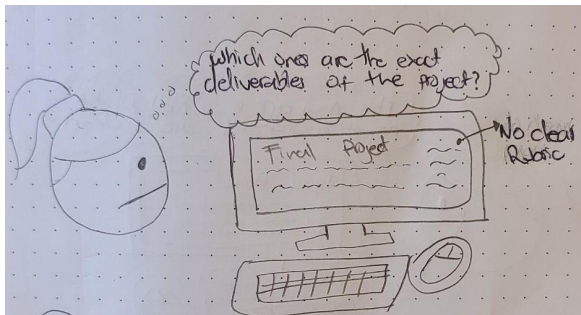 Which ones are the exact
deliverables of the project?
Final Project
No clear
Rubric